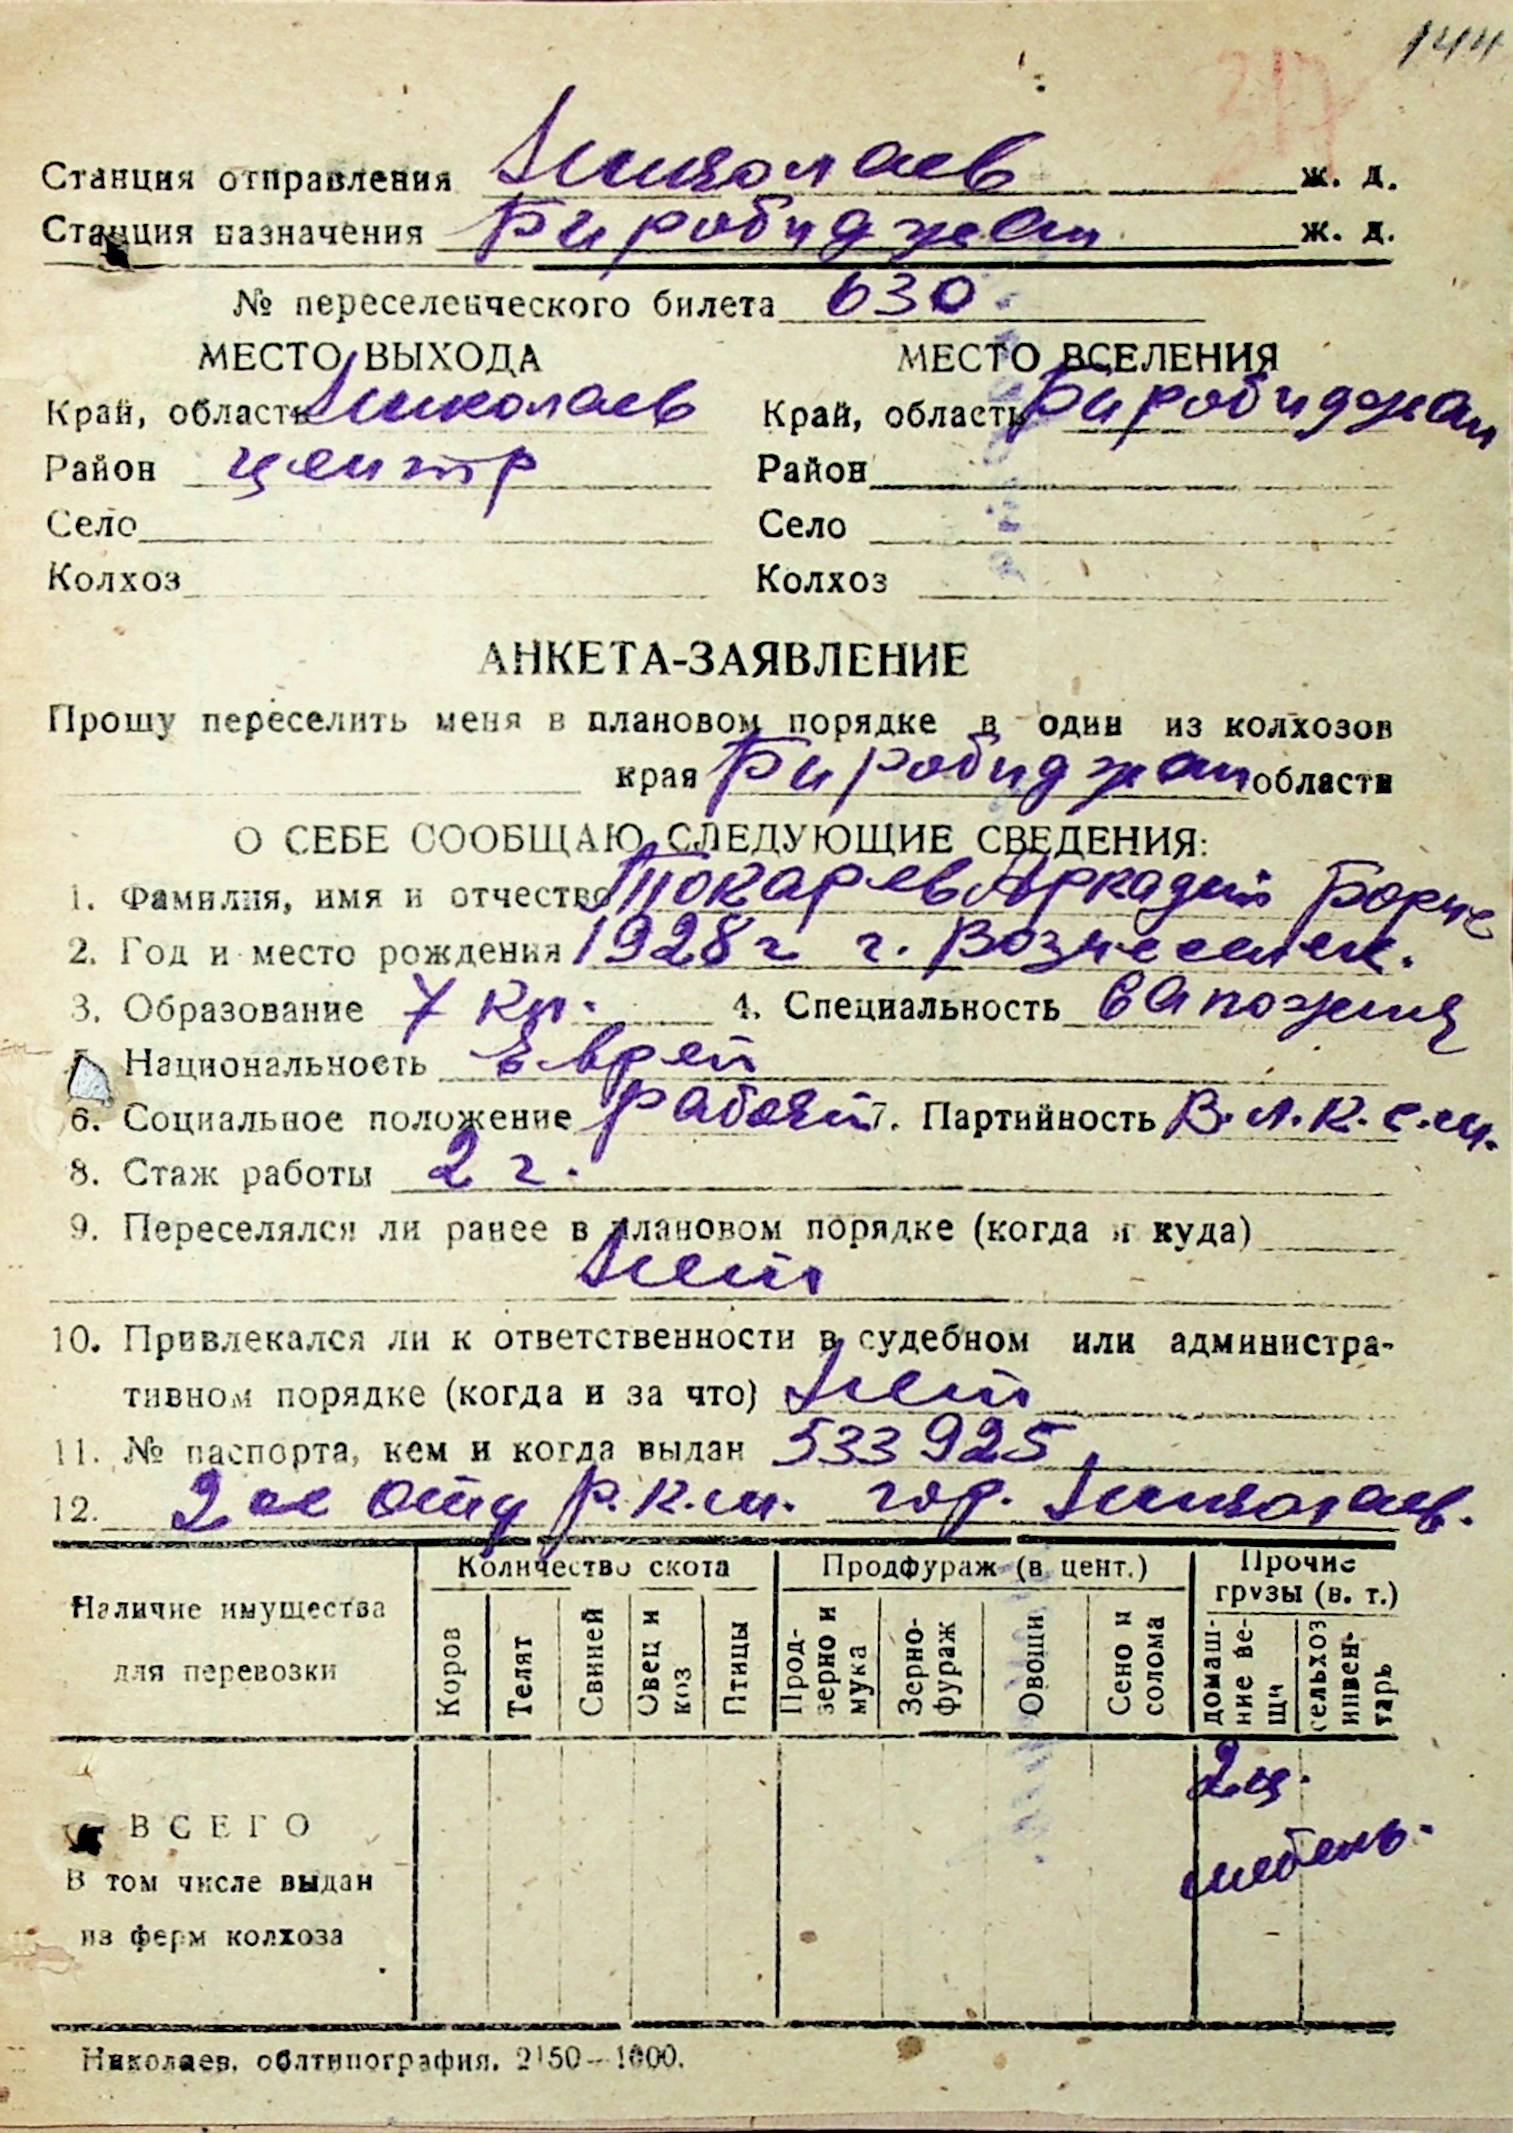 144
Станция отправления Николаев ж. д.
Станция назначения Биробиджан ж. д.
№ переселенческого билета 630.
МЕСТО ВЫХОДА МЕСТО ВСЕЛЕНИЯ
Край, область Николаев Край, область Биробиджан
Район центр Район
Село Село
Колхоз Колхоз
АНКЕТА-ЗАЯВЛЕНИЕ
Прошу переселить меня в плановом порядке в один из колхозов
края Биробиджан области
О СЕБЕ СООБЩАЮ СЛЕДУЮЩИЕ СВЕДЕНИЯ:
1. Фамилия, имя и отчество Токарев Аркадий Борис
2. Год и место рождения 1928 г г. Вознесенск.
3. Образование 7 кл. 4. Специальность сапожник
5. Национальность Еврей
6. Социальное положение рабочий 7. Партийность В.Л.К.С.М.
8. Стаж работы 2 г.
9. Переселялся ли ранее в плановом порядке (когда и куда)
Нет
10. Привлекался ли к ответственности в судебном или администра-
тивном порядке (когда и за что) Нет
11. № паспорта, кем и когда выдан 533925,
12. 2ое отд Р.К.М. гор. Николаев.
Наличие имущества для перевозки
Количество скота Продфураж (в цент.) Прочие грузы (в. т.)
Коров Телят Свиней Овец и коз Птицы Прод-зерно и мука Зерно-фураж Овощи Сено и солома домаш-ние ве-щи сельхоз инвен-тарь
2 ц.
ВСЕГО мебель.
В том числе выдан
из ферм колхоза
Николаев, облтипография. 2150—1000.